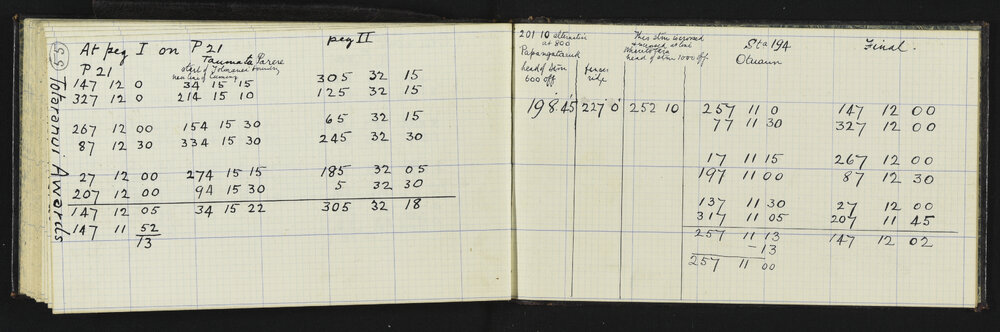 55
Totaranui Awards
At peg I on P21 peg II
P21 Taumata Parere
start of Totaranui boundary
147 12 0 34 15 15 305 32 15
327 12 0 214 15 10 125 32 15
267 12 00 154 15 30 65 32 15
87 12 30 334 15 30 245 32 30
27 12 00 274 15 15 185 32 05
207 12 00 94 15 30 5 32 30
147 12 05 34 15 22 305 32 18
147 11 52
13
201 10 This stm is crossed Sta 194 Final.
at 800
head of stm 1000 off Otuaun
head of stm fence
600 off ridge
198.45 227 0 252 10 257 11 0 147 12 00
77 11 30 327 12 00
17 11 15 267 12 00
197 11 00 87 12 30
137 11 30 27 12 00
317 11 05 207 11 45
257 11 13 147 12 02
-13
257 11 00